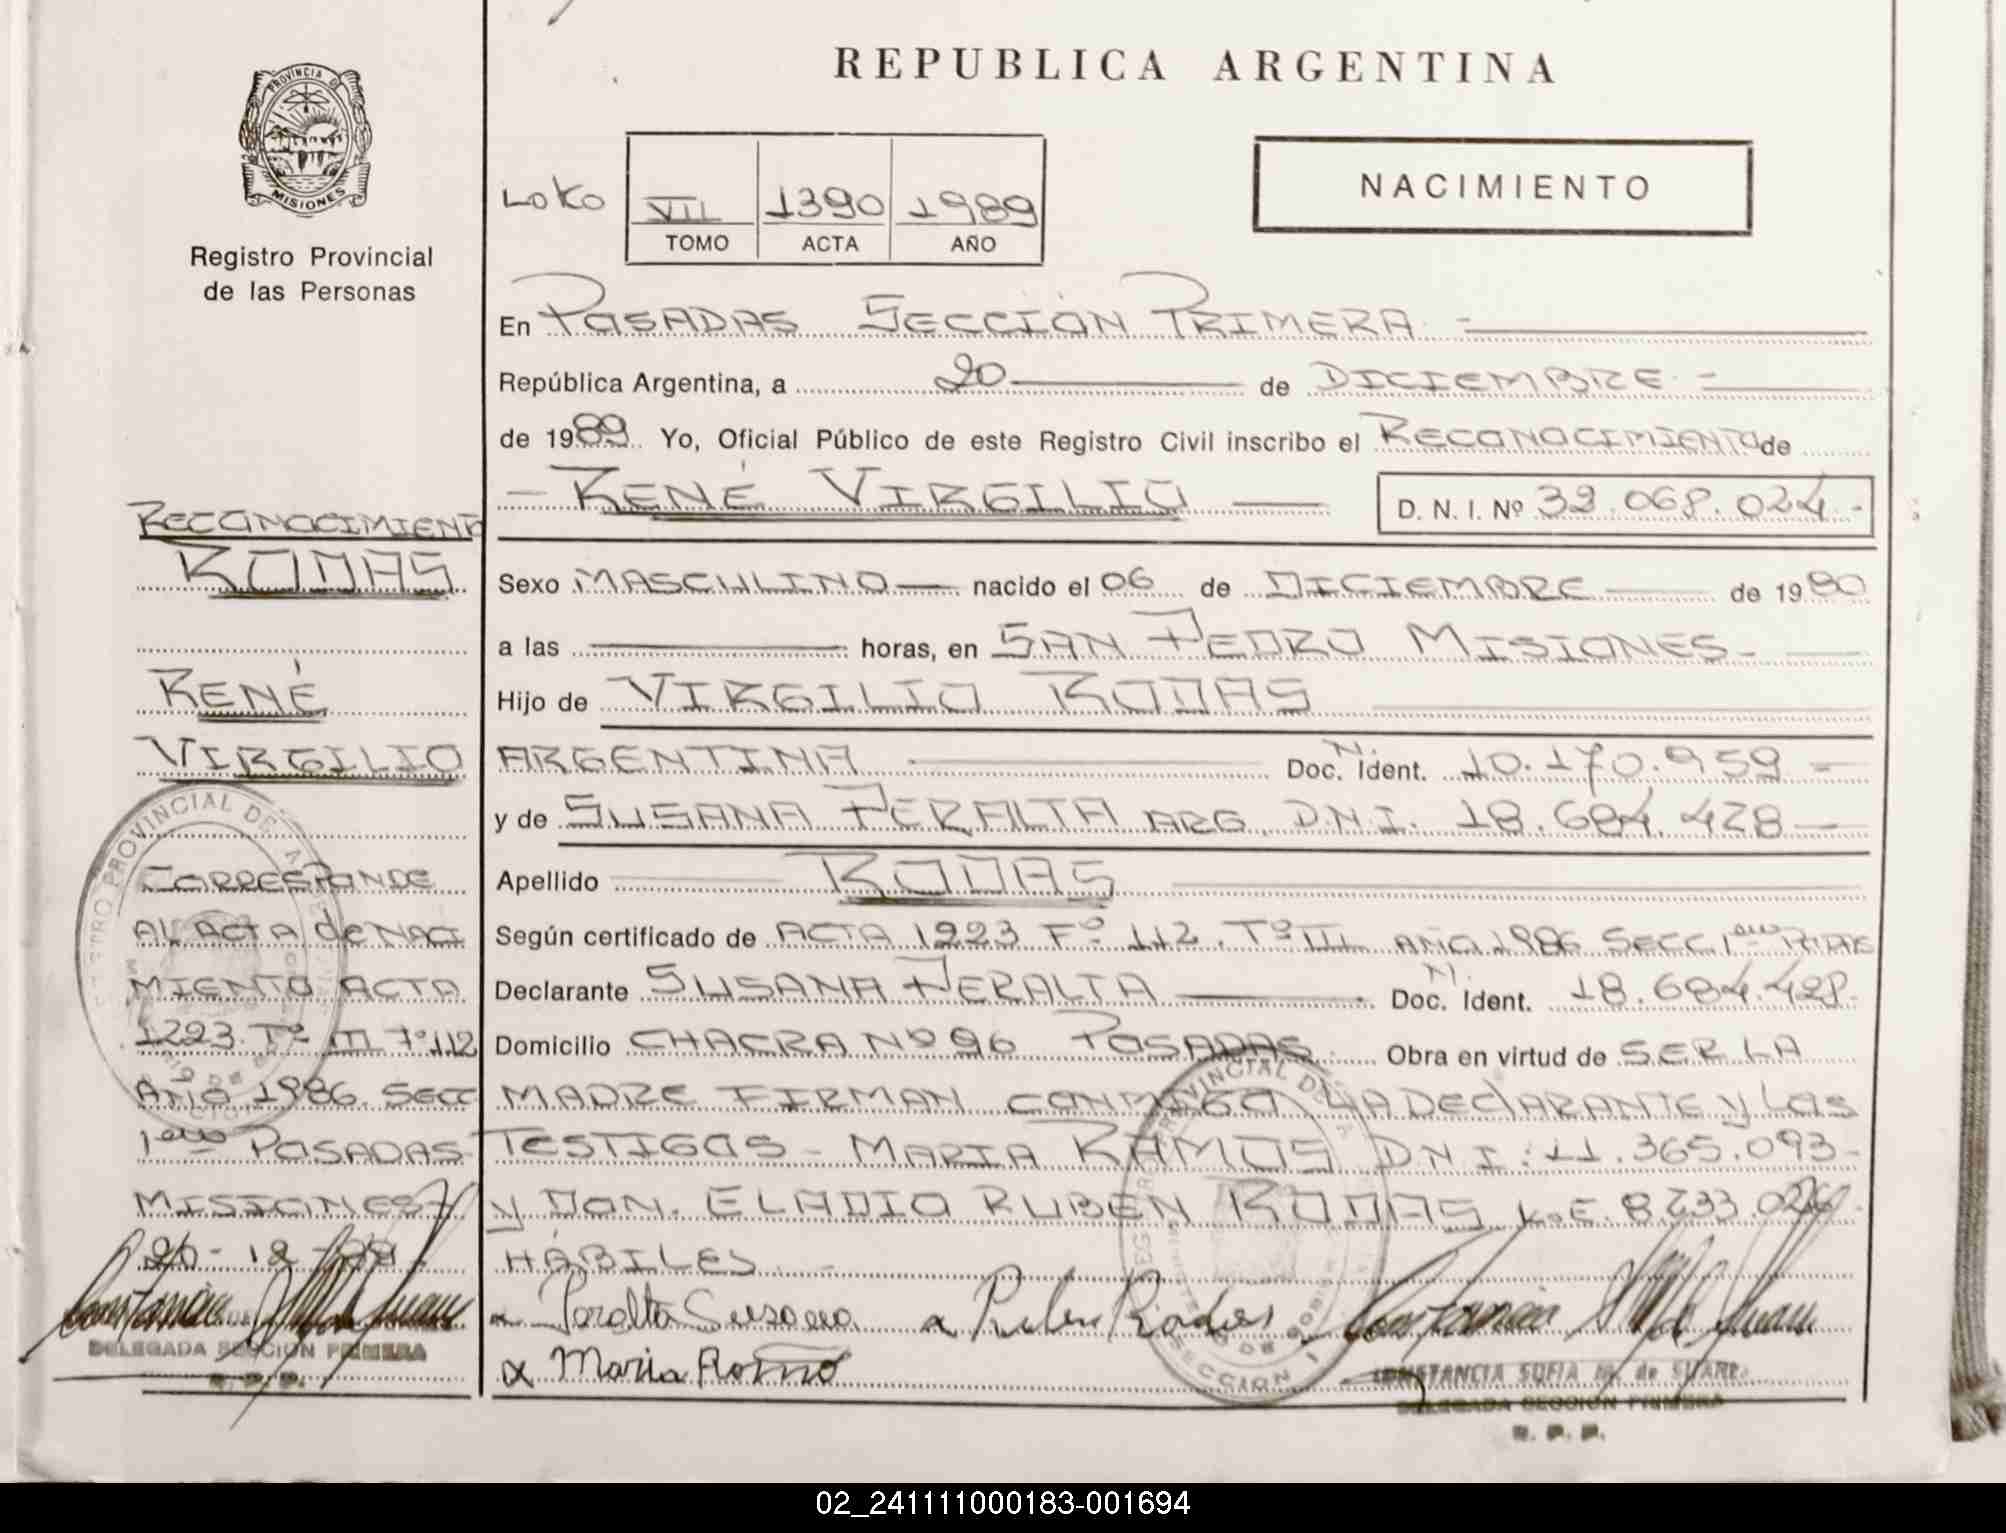 PROVINCIA DE
MISIONES
Registro Provincial
de las Personas
RECONOCIMIENTO
RODAS
RENÉ
VIRGILIO
CORRESPONDE
AL ACTA de NACI
MIENTO ACTA
1223 Tº III Fº 112
AÑO 1986. SECC
1era POSADAS
MISIONES
20-12-89
DELEGADA SECCION PRIMERA
R. P. P.
REPUBLICA ARGENTINA
VII 1390 1989
TOMO ACTA AÑO
NACIMIENTO
En POSADAS SECCIÓN PRIMERA -
República Argentina, a 20 de DICIEMBRE -
de 1989 Yo, Oficial Público de este Registro Civil inscribo el RECONOCIMIENTO de
- RENÉ VIRGILIO D. N. I. Nº 32.068.024.-
Sexo MASCULINO nacido el 06 de DICIEMBRE de 1980
a las horas, en SAN PEDRO MISIONES -
Hijo de VIRGILIO RODAS
ARGENTINA Doc. N. Ident. 10.170.959 -
y de SUSANA PERALTA ARG. D.N.I. 18.684.428 -
Apellido RODAS
Según certificado de ACTA 1223 Fº 112. Tº III AÑO 1986 SECC 1era
Declarante SUSANA PERALTA Doc. N. Ident. 18.684.428.
Domicilio CHACRA Nº 96 POSADAS Obra en virtud de SER LA
MADRE FIRMAN CONMIGO LA DECLARANTE y LOS
TESTIGOS - MARIA RAMOS DNI: 11.365.093 -
y DON. ELADIO RUBEN RODAS L.E. 8.233.026
HÁBILES
Peralta Susana Ruben Rodas
Maria Ramo
CONSTANCIA SOFIA M. de SUAREZ
DELEGADA SECCION PRIMERA
R. P. P.
02_241111000183-001694